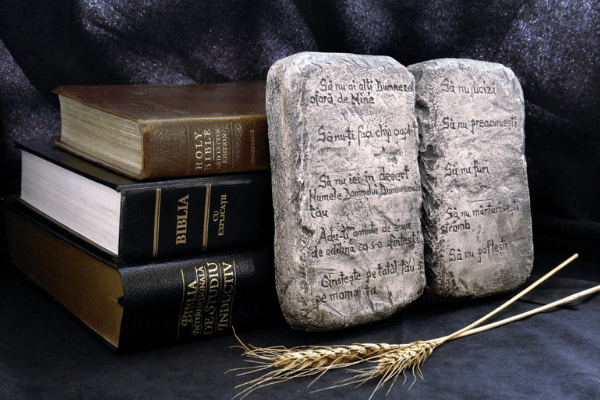 HOLY
BIBLE
BIBLIA
CU
EXPLICAȚII
BIBLIA
DE STUDIU
INDUCTIV
Să nu ai alți Dumnezei
afară de Mine
Să nu-ți faci chip cioplit
Să nu iei în deșert
Numele Domnului Dumnezeului
tău
Adu-ți aminte de ziua
de odihnă ca s-o sfințești
Cinstește pe tatăl tău
pe mama ta
Să nu ucizi
Să nu preacurvești
Să nu furi
Să nu mărturisești
strâmb
Să nu poftești